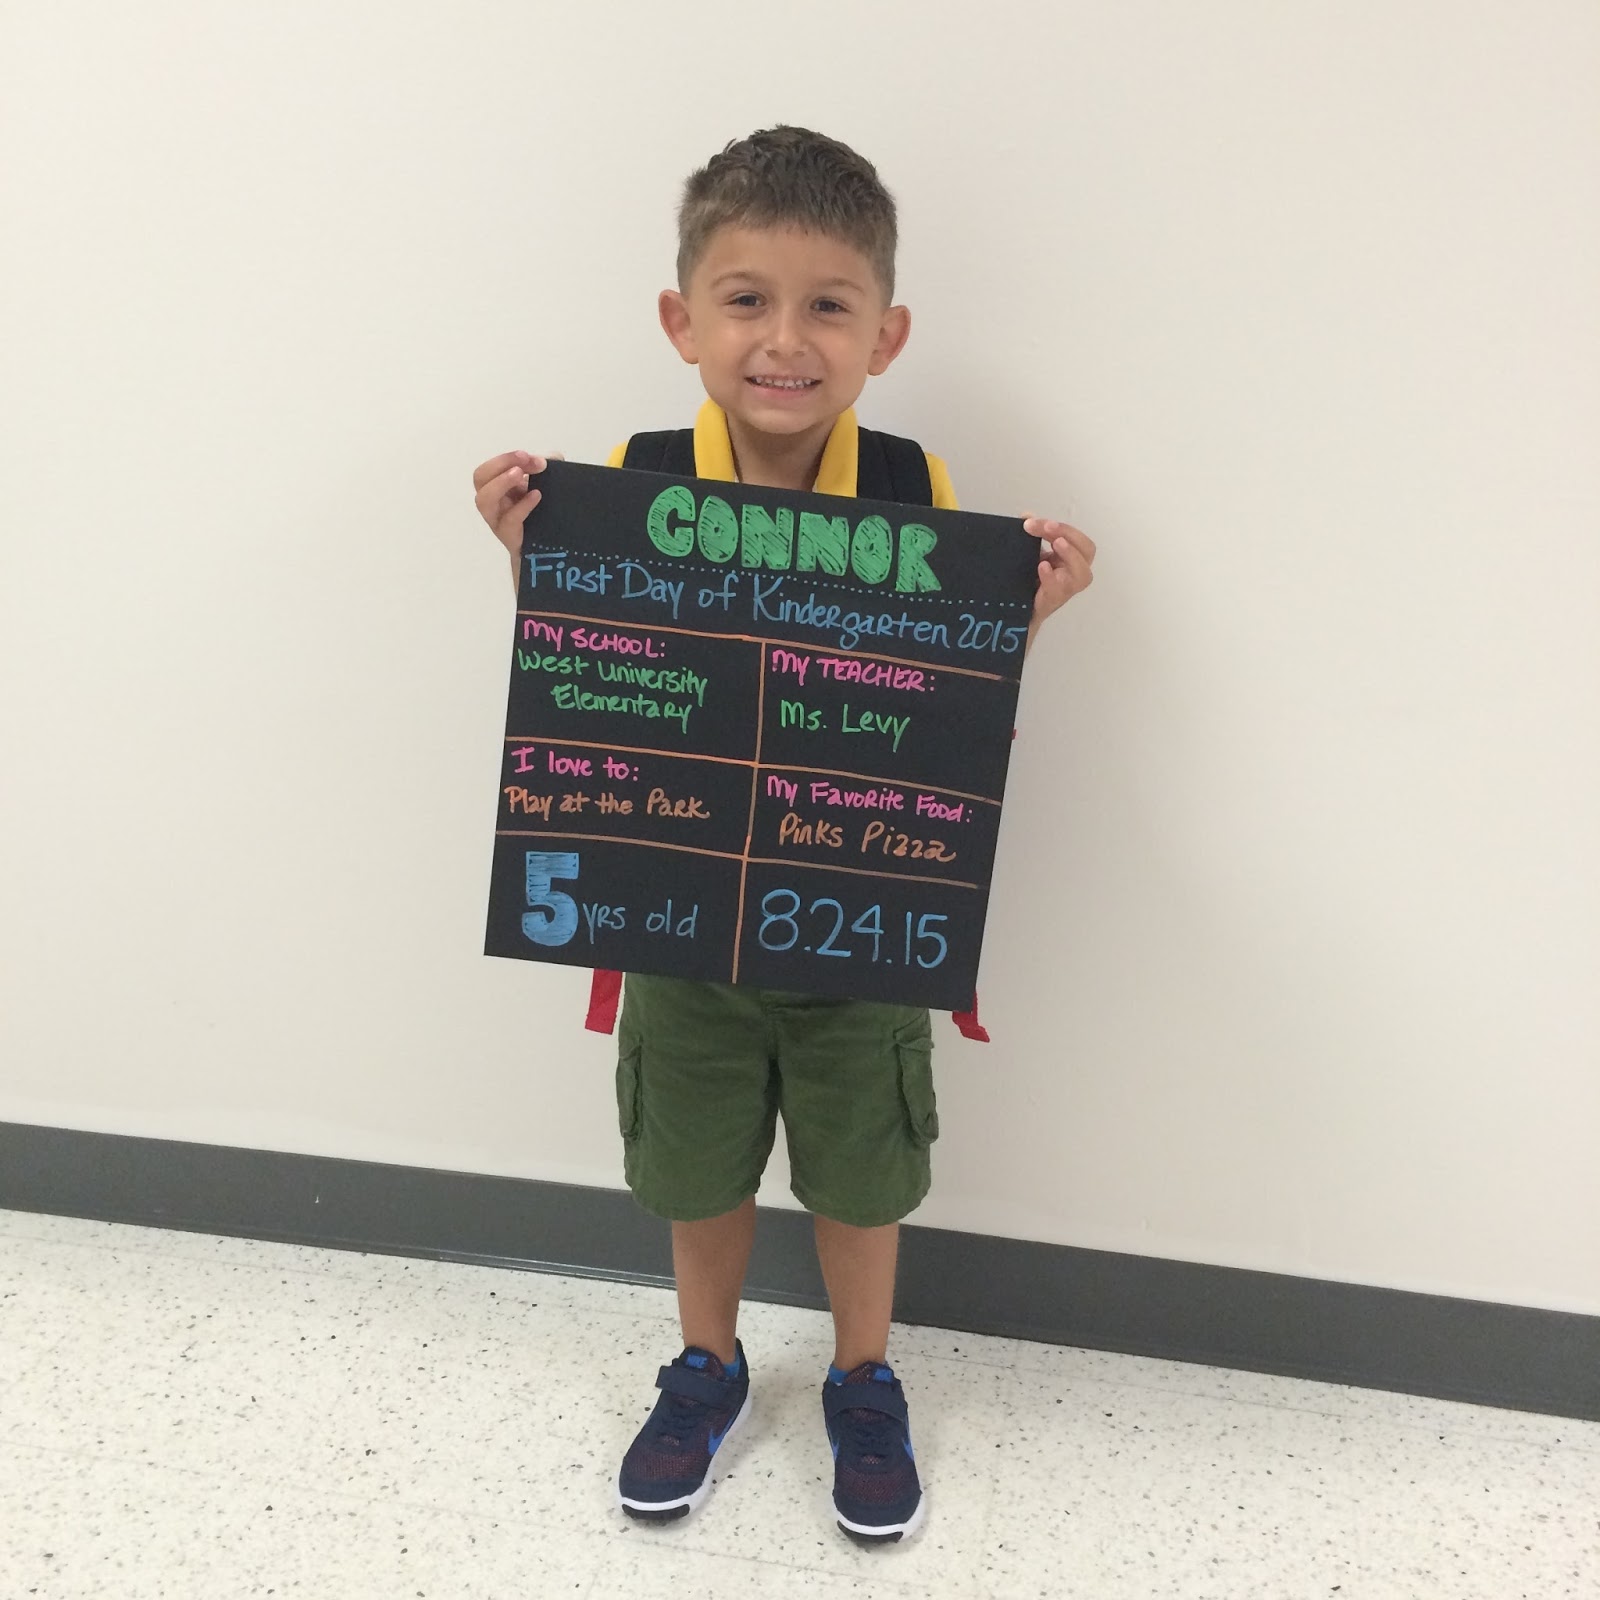 CONNOR
First Day of Kindergarten 2015
My SCHOOL:
West University
Elementary
My TEACHER:
Ms. Levy
I love to:
Play at the Park
My Favorite Food:
Pinks Pizza
5 yrs old
8.24.15
NIKE